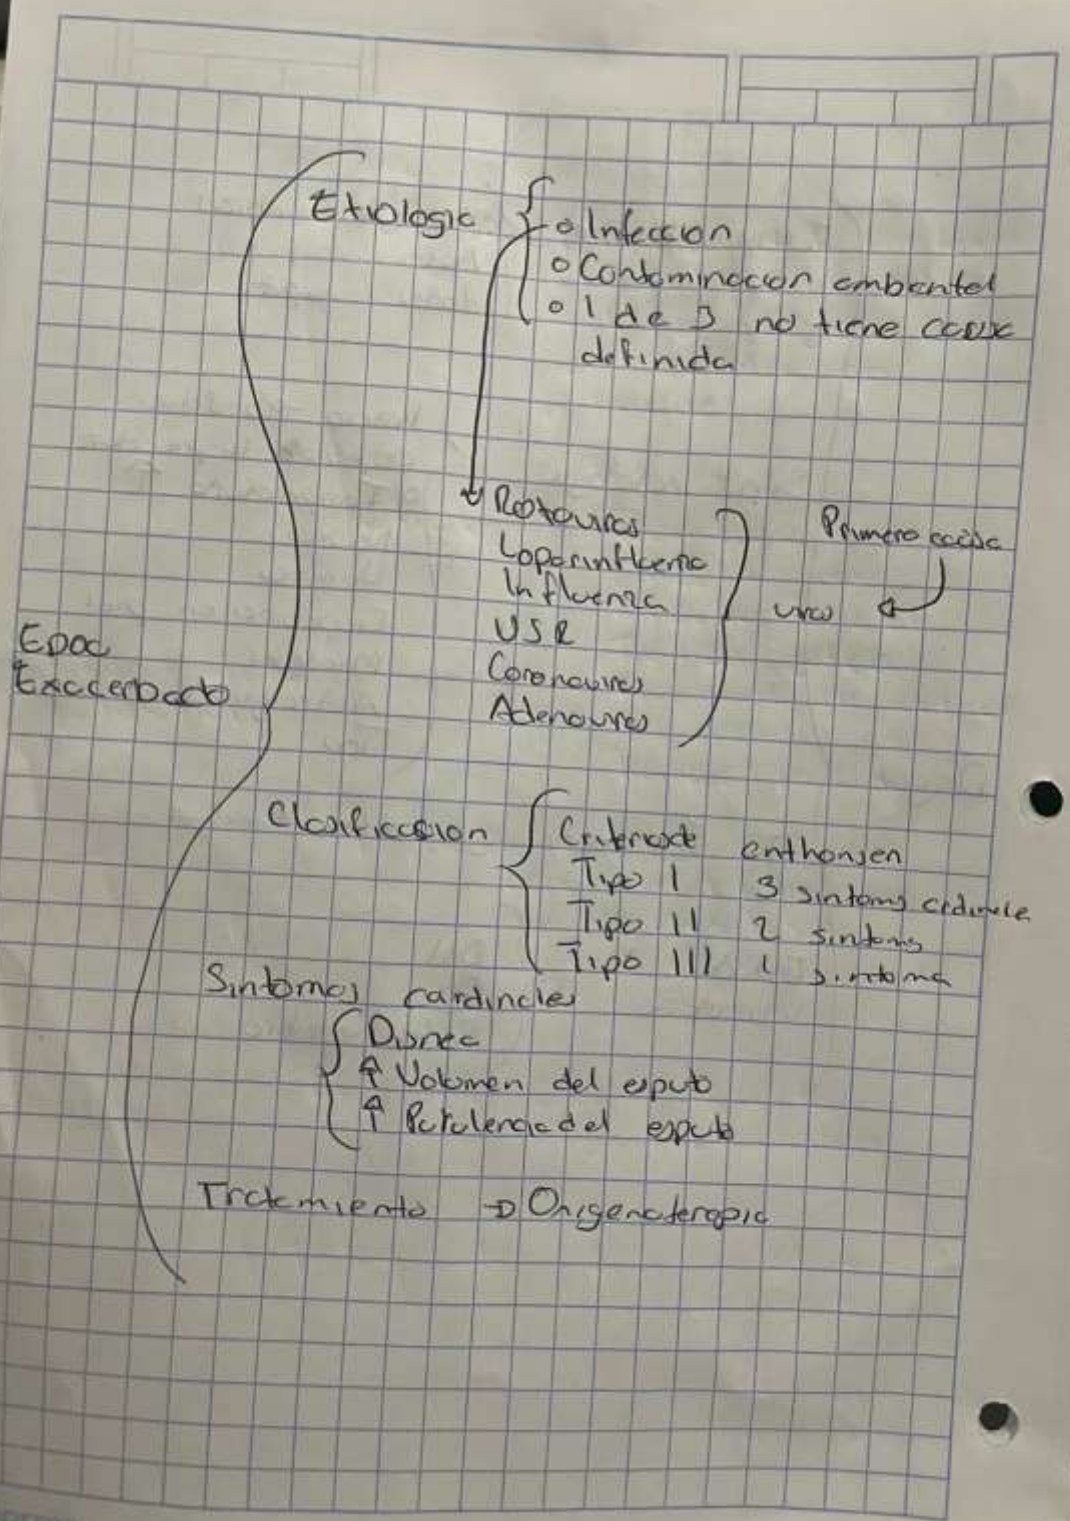 Etiologia
o Infeccion
o Contaminacion ambiental
o 1 de 3 no tiene causa
definida
Rotavirus
Influenza
VSR
Coronavirus
Adenovirus
Primera causa
virus
Epoc
Exacerbado
Clasificacion
Criterios de enthonsen
Tipo I 3 sintomas
Tipo II 2 sintomas
Tipo III 1 sintoma
Sintomas cardinales
Disnea
↑ Volumen del esputo
↑ Purulencia del esputo
Tratamiento → Oxigenoterapia